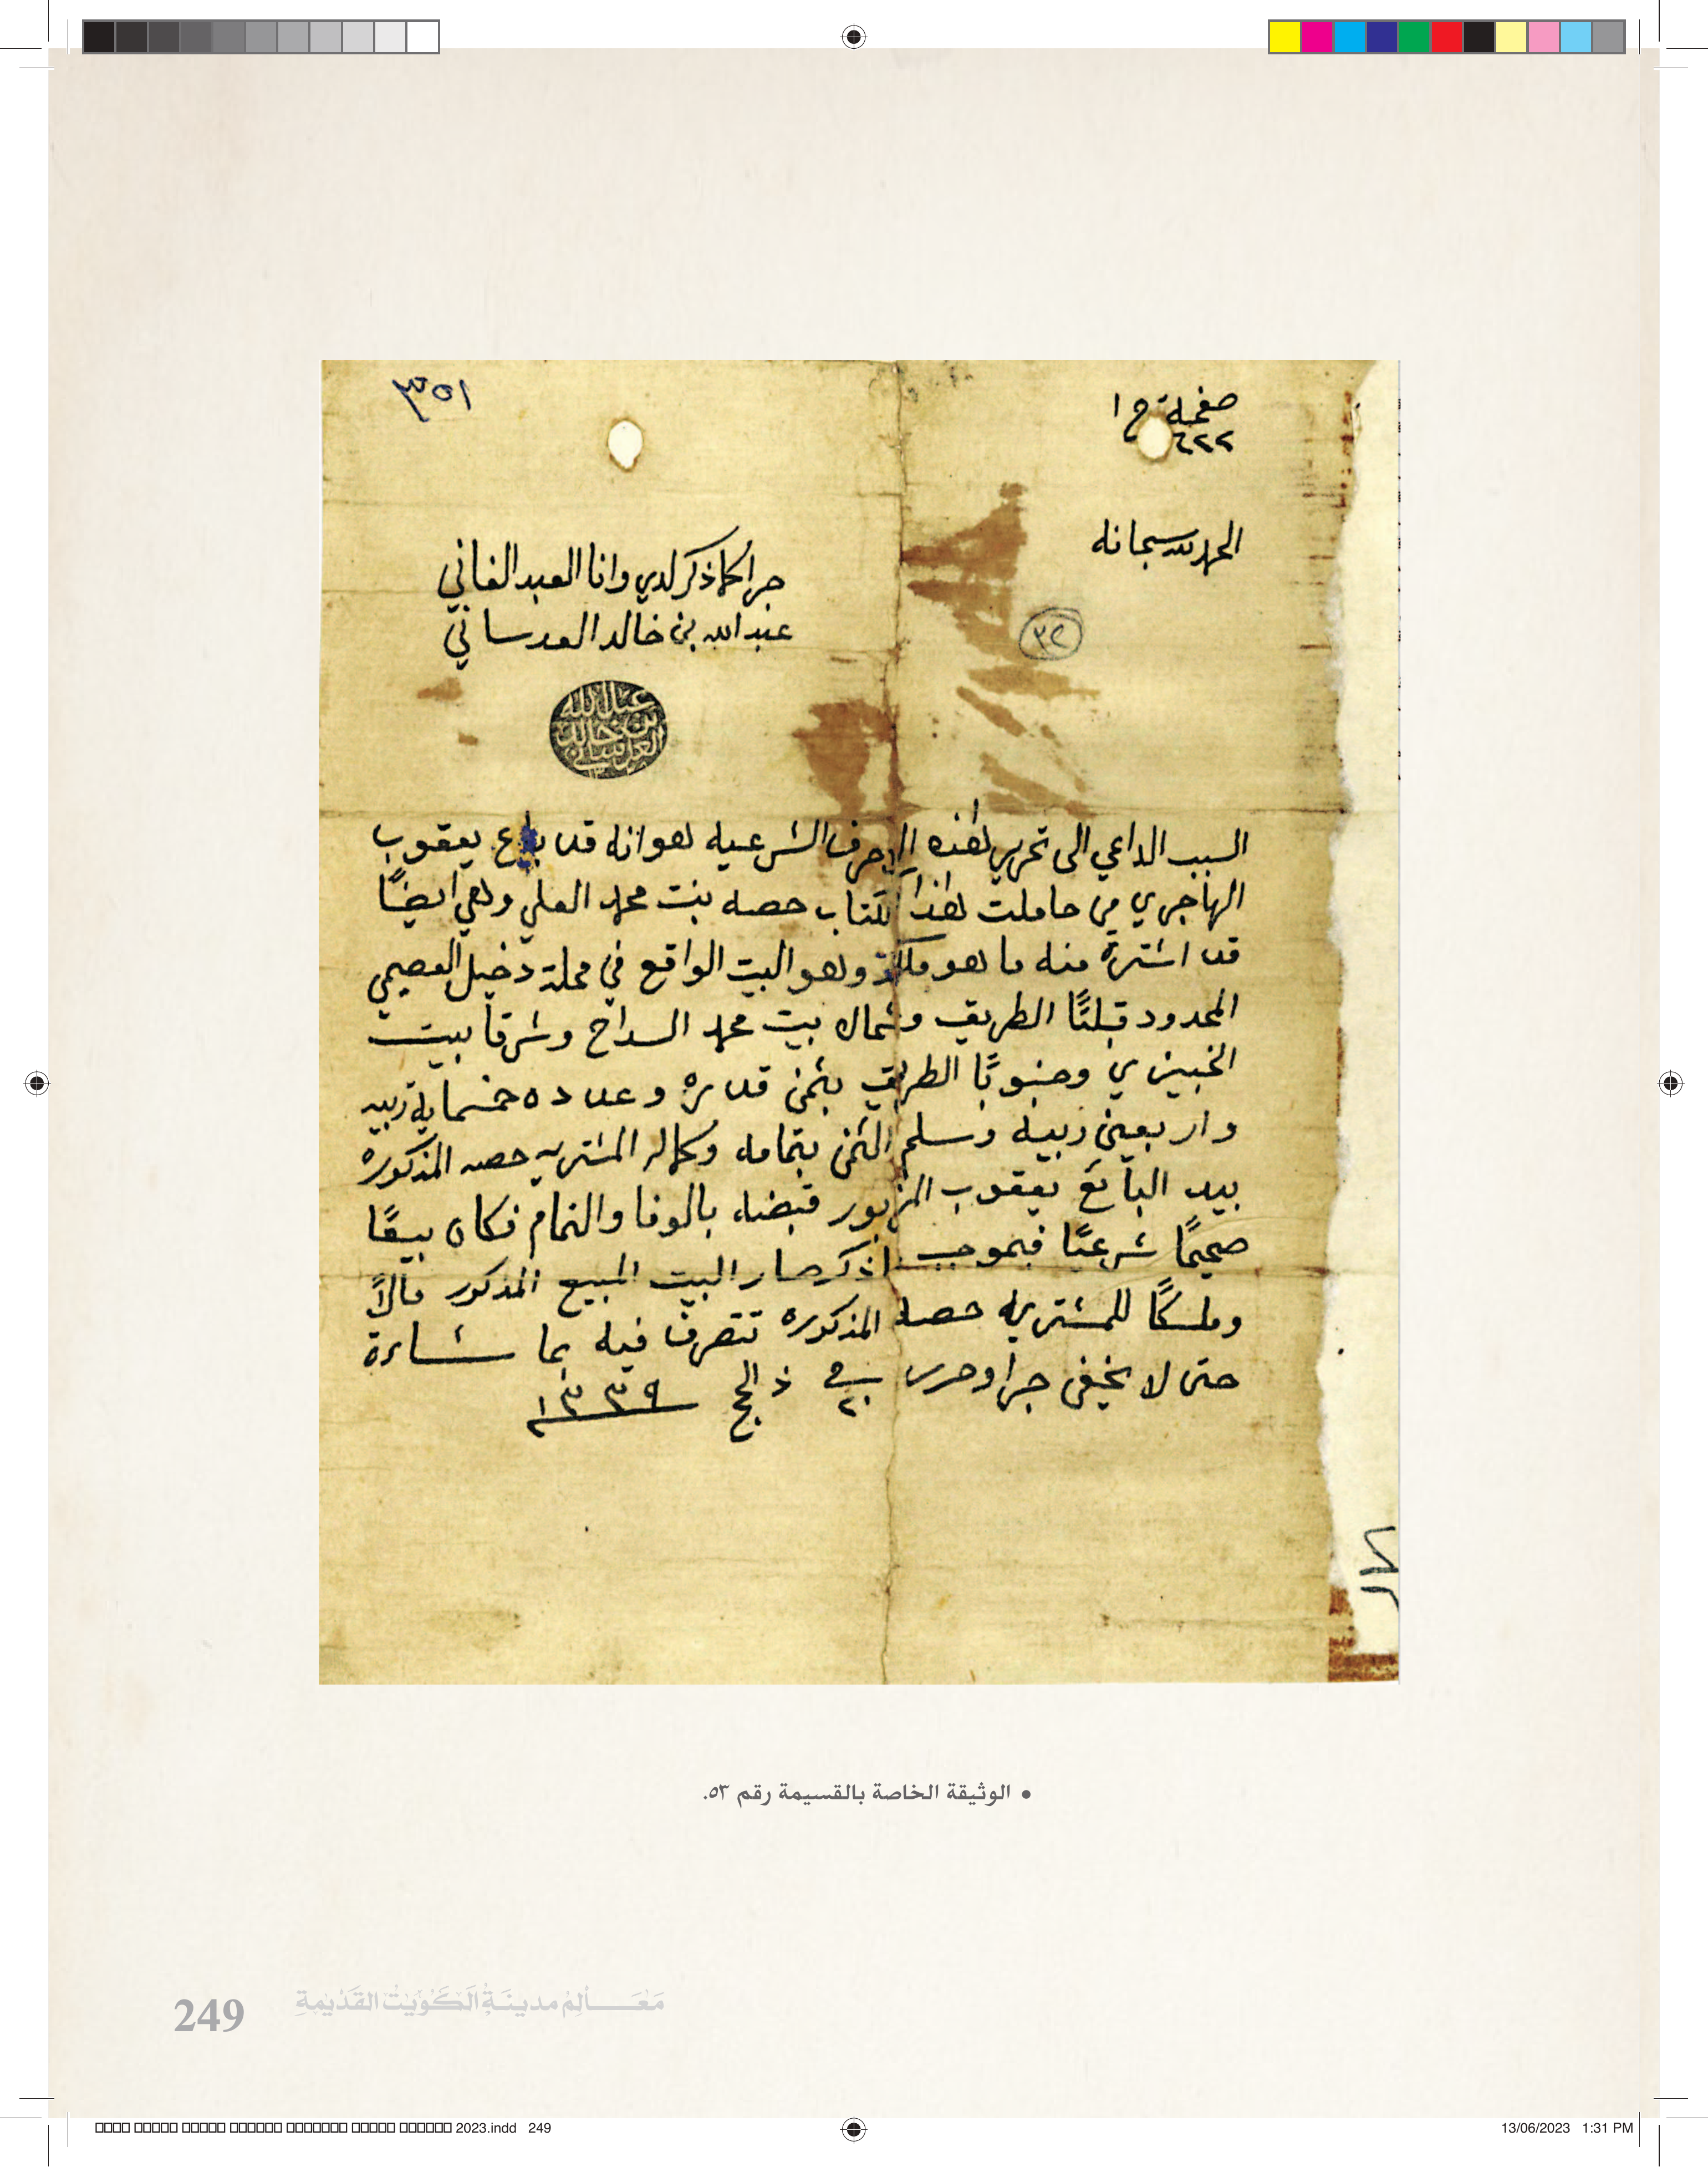 ٣٥١
صفحة ج ١
٦٢٢
الحمد لله سبحانه
جرا كما ذكر لدي وانا العبد الفاني
عبد الله بن خالد العدساني
٣٢
عبد الله
بن خالد
العدساني
السبب الداعي الى تحرير هذه الاحرف الشرعيه هو انه قد باع يعقوب
الهاجري من حاملت هذا الكتاب حصه بنت محمد العلي وهي ايضًا
قد اشترة منه ما هو ملكه وهو البيت الواقع في محلة دخيل العصيمي
المحدود قبلتًا الطريق وشمالا بيت محمد السداح وشرقا بيت
الخبيزي وجنوبًا الطريق بثمن قدره وعدده خمسماية ربيه
واربعين ربيه وسلم الثمن بتمامه وكماله المشتريه حصه المذكوره
بيد البائع يعقوب المزبور قبضه بالوفا والتمام فكان بيعًا
صحيحًا شرعيًا فبموجب اذكر صار البيت المبيع المذكور مالاً
وملكًا للمشتريه حصه المذكوره تتصرف فيه بما شاءة
حتى لا يخفى جرا وحرر في ٢٠ ذ الحج ١٣٣٩
• الوثيقة الخاصة بالقسيمة رقم ٥٣.
249 مَعَالِمُ مدينَةِ الكُوَيْتِ القَدْيمَةِ
2023.indd 249
13/06/2023 1:31 PM